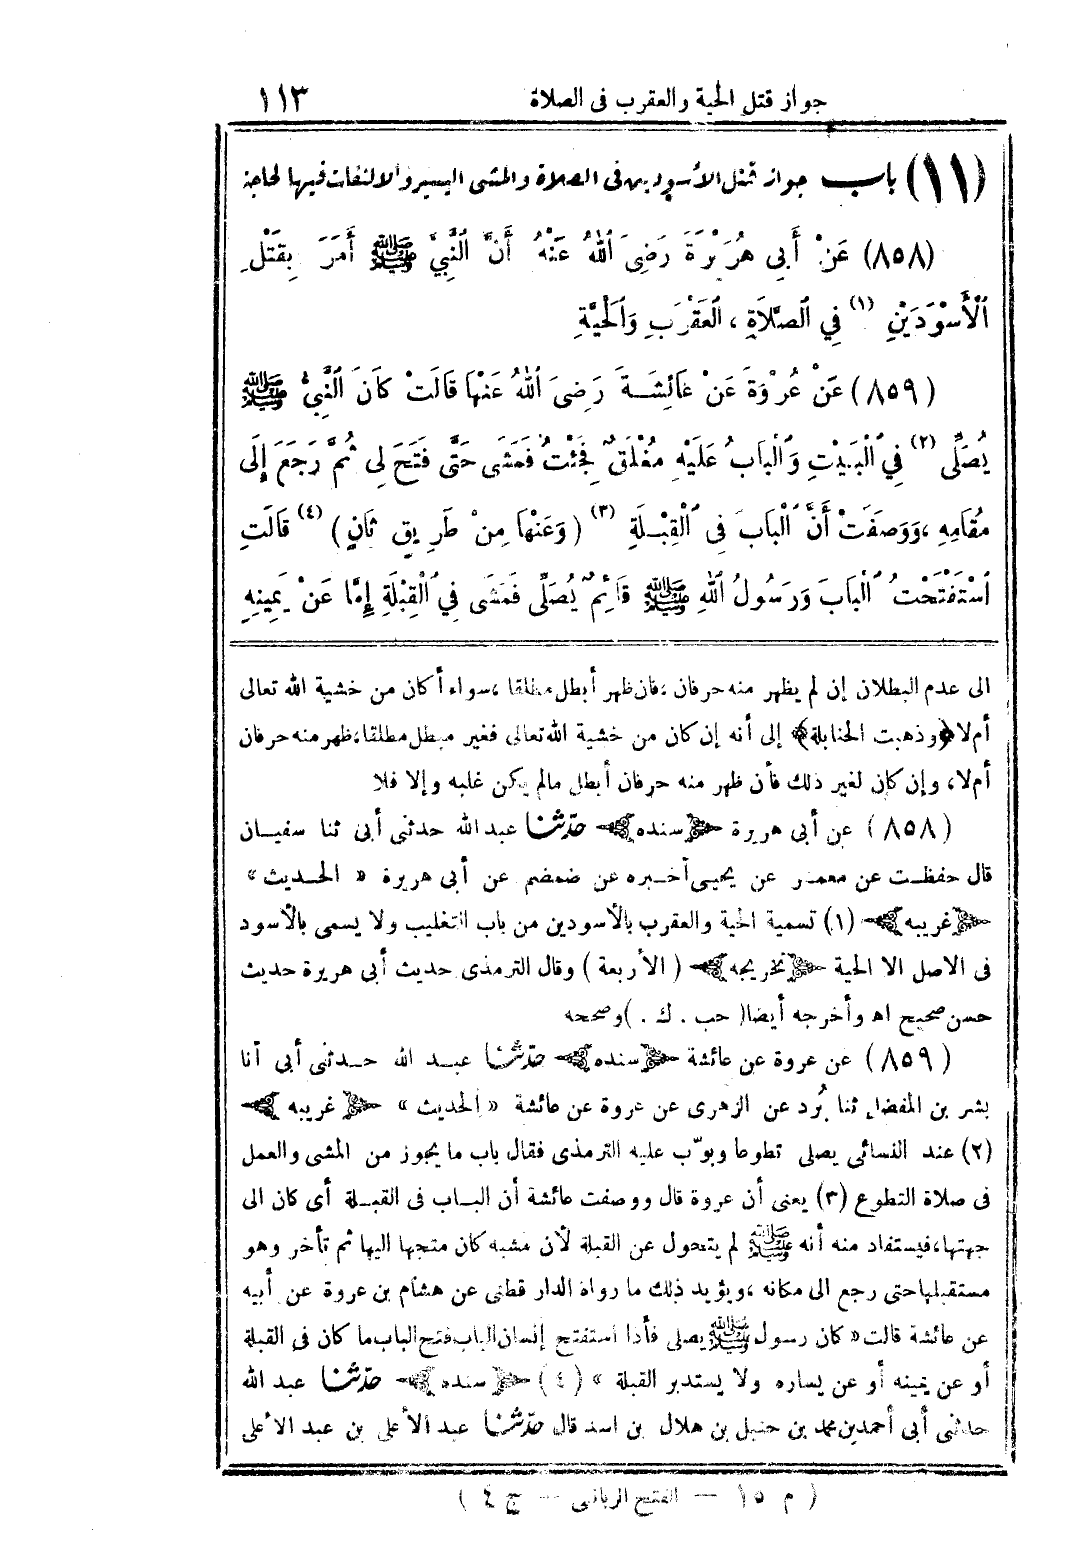 جواز قتل الحية والعقرب فى الصلاة ١١٣
(١١) باب جواز قتل الأسودين فى الصلاة والمشى اليسير والالتفات فيها لحاجة
(٨٥٨) عَنْ أَبِى هُرَيْرَةَ رَضِىَ ٱللهُ عَنْهُ أَنَّ ٱلنَّبِيَّ ﷺ أَمَرَ بِقَتْلِ
ٱلْأَسْوَدَيْنِ (١) فِي ٱلصَّلَاةِ ، ٱلْعَقْرَبِ وَٱلْحَيَّةِ
(٨٥٩) عَنْ عُرْوَةَ عَنْ عَائِشَةَ رَضِىَ ٱللهُ عَنْهَا قَالَتْ كَانَ ٱلنَّبِيُّ ﷺ
يُصَلِّى (٢) فِي ٱلْبَيْتِ وَٱلْبَابُ عَلَيْهِ مُغْلَقٌ فَجِئْتُ فَمَشَى حَتَّى فَتَحَ لِى ثُمَّ رَجَعَ إِلَى
مُقَامِهِ ،وَوَصَفَتْ أَنَّ ٱلْبَابَ فِى ٱلْقِبْلَةِ (٣) (وَعَنْهَا مِنْ طَرِيقٍ ثَانٍ) (٤) قَالَتِ
ٱسْتَفْتَحْتُ ٱلْبَابَ وَرَسُولُ ٱللهِ ﷺ قَائِمٌ يُصَلِّى فَمَشَى فِي ٱلْقِبْلَةِ إِمَّا عَنْ يَمِينِهِ
الى عدم البطلان إن لم يظهر منه حرفان ،فان ظهر أبطل مطلقا ،سواء أكان من خشية الله تعالى
أم لا ﴿وذهبت الحنابلة﴾ إلى أنه إن كان من خشية الله تعالى فغير مبطل مطلقا،ظهر منه حرفان
أم لا، وإن كان لغير ذلك فأن ظهر منه حرفان أبطل مالم يكن غلبه وإلا فلا
(٨٥٨) عن أبى هريرة ﴿سنده﴾ حدّثنا عبد الله حدثنى أبى ثنا سفيان
قال حفظت عن معمر عن يحيى أخبره عن ضمضم عن أبى هريرة « الحديث »
﴿غريبه﴾ (١) تسمية الحية والعقرب بالأسودين من باب التغليب ولا يسمى بالأسود
فى الاصل الا الحية ﴿تخريجه﴾ (الأربعة) وقال الترمذى حديث أبى هريرة حديث
حسن صحيح اه وأخرجه أيضا( حب . ك . )وصححه
(٨٥٩) عن عروة عن عائشة ﴿سنده﴾ حدّثنا عبد الله حدثنى أبى أنا
بشر بن المفضل ثنا بُرد عن الزهرى عن عروة عن عائشة « الحديث » ﴿غريبه﴾
(٢) عند النسائى يصلى تطوعا وبوّب عليه الترمذى فقال باب ما يجوز من المشى والعمل
فى صلاة التطوع (٣) يعنى أن عروة قال ووصفت عائشة أن الباب فى القبلة أى كان الى
جهتها،فيستفاد منه أنه ﷺ لم يتحول عن القبلة لأن مشيه كان متجها اليها ثم تأخر وهو
مستقبلها حتى رجع الى مكانه ،ويؤيد ذلك ما رواه الدار قطنى عن هشام بن عروة عن أبيه
عن عائشة قالت« كان رسول ﷺ يصلى فأذا استفتح إنسان الباب فتح الباب ما كان فى القبلة
أو عن يمينه أو عن يساره ولا يستدبر القبلة » (٤) ﴿سنده﴾ حدّثنا عبد الله
حدثنى أبى أحمد بن محمد بن حنبل بن هلال بن اسد قال حدّثنا عبد الأعلى بن عبد الأعلى
( م ١٥ — الفتح الربانى — ج ٤ )